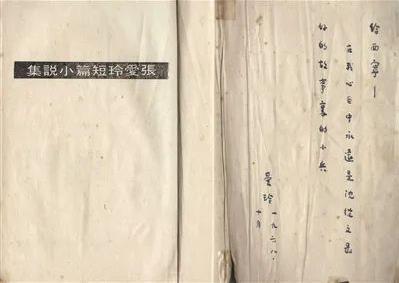 張愛玲短篇小說集
給西甯—
在我心目中永遠是沈從文最
好的故事裏的小兵
愛玲 一九六八、
十月